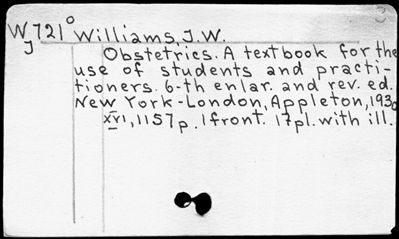 W 721° Williams, J.W.
J
Obstetrics. A textbook for the
use of students and practi-
tioners. 6-th enlar. and rev. ed.
New York-London, Appleton, 1930
XVI, 1157 p. 1 front. 17 pl. with ill.